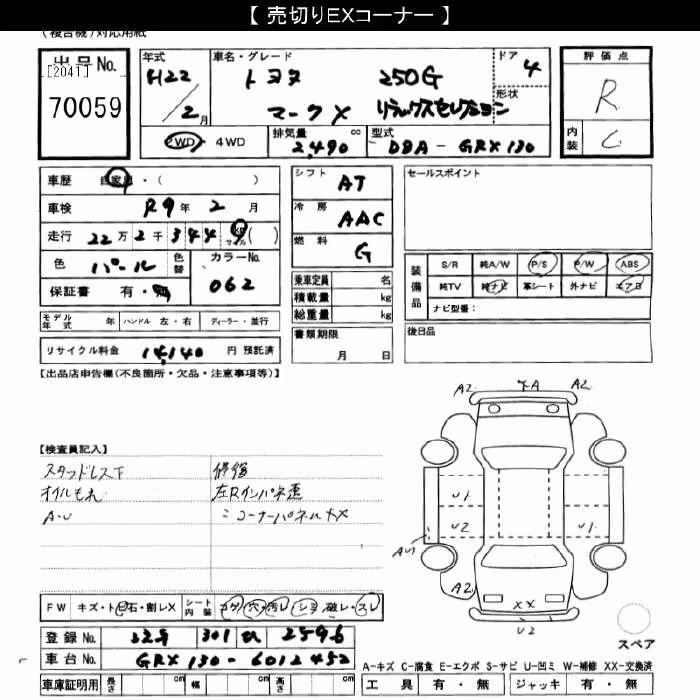 【 売切りEXコーナー 】
(複合機)対応用紙
出品No. [2041] 70059
年式 H22 / 2 月
車名・グレード トヨタ 250G
マークX リラックスセレクション
ドア 4
形状
評価点 R
内装 C
2WD ・ 4WD
排気量 2,490 cc
型式 DBA - GRX130
車歴 自家用 ・ ( )
車検 R9 年 2 月
走行 22 万 2 千 3 4 4 ( )
色 パール 色替
カラーNo. 062
保証書 有・無
シフト AT
冷房 AAC
燃料 G
乗車定員 名
積載量 kg
総重量 kg
書類期限
月 日
セールスポイント
装備品 S/R 純A/W P/S P/W ABS
純TV 純ナビ 革シート 外ナビ エアB
ナビ型番：
後日品
モデル年式 年 ハンドル 左・右 ディーラー・並行
リサイクル料金 14,140 円 預託済
【出品店申告欄(不良箇所・欠品・注意事項等)】
【検査員記入】
スタッドレス下
オイルもれ
A・U
修復
左Rインパネ歪
〃コーナーパネル大X
A2 A2
U1
U2 U1
A2
A2
XX
U2
スペア
FW キズ・トビ石・割レX シート内装 コゲ・穴・汚レ・シミ・破レ・スレ
登録No. 301 2596
車台No. GRX130-6012452
車庫証明用 長さ cm 幅 cm 高さ cm
A-キズ C-腐食 E-エクボ S-サビ U-凹ミ W-補修 XX-交換済
工具 有・無 ジャッキ 有・無